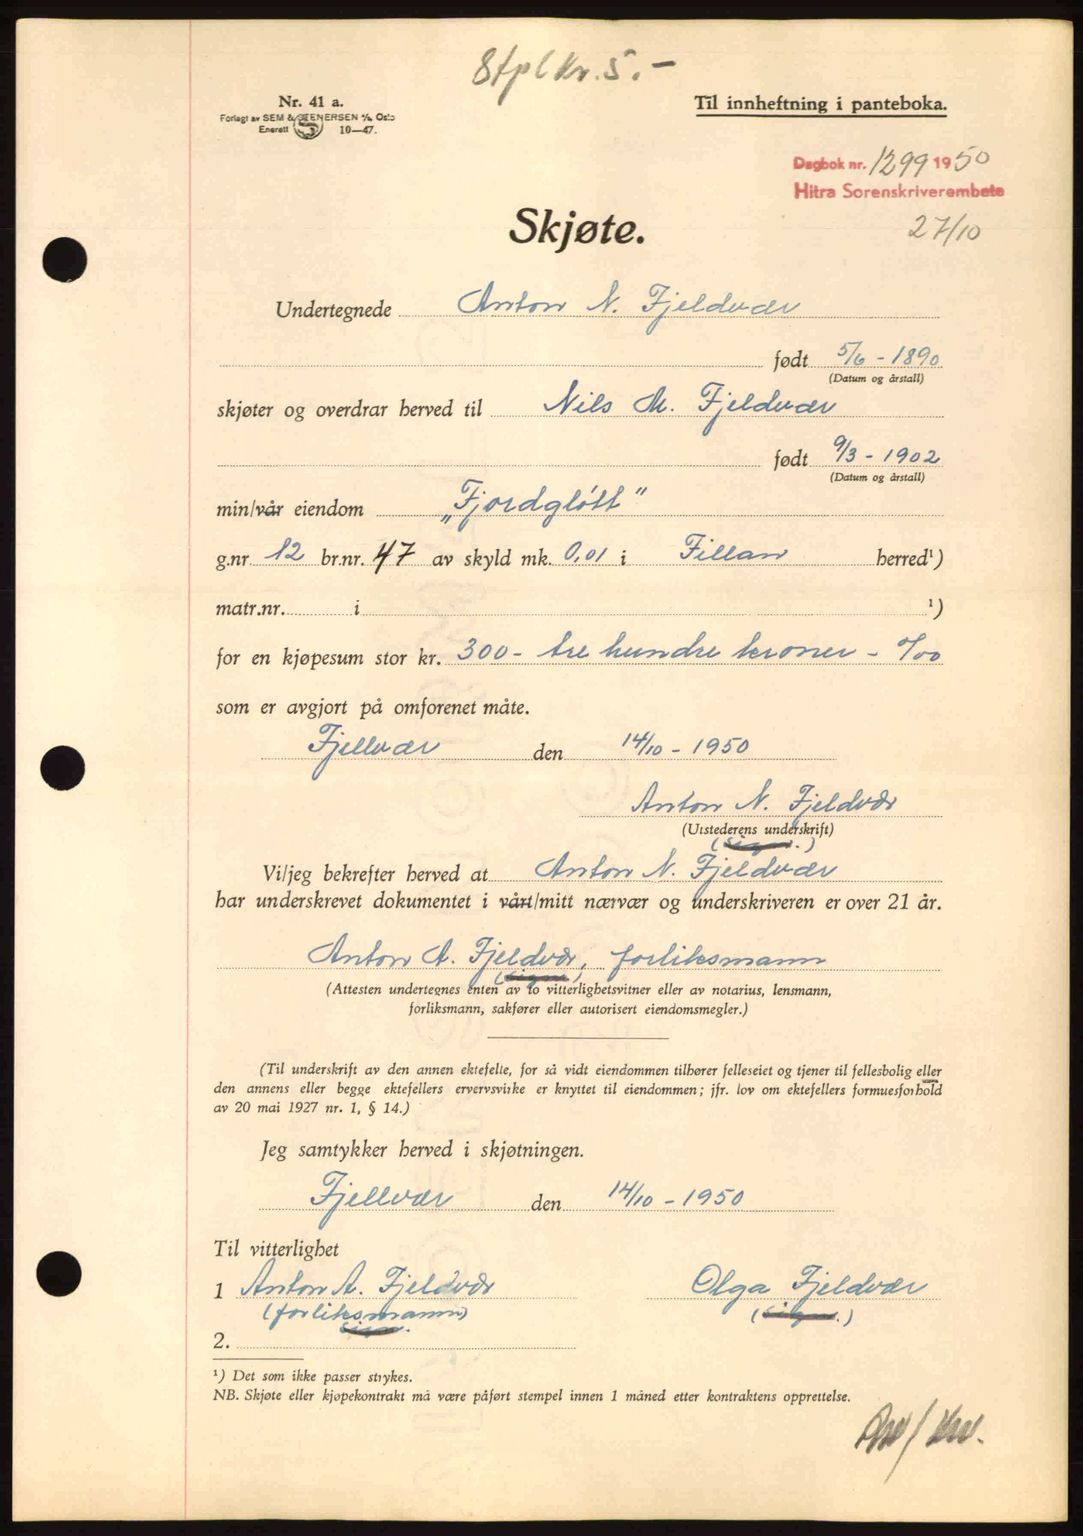 Stpl kr. 5.-
Nr. 41 a.
Forlagt av SEM & STENERSEN A/S, Oslo
Enerett 10—47.
Til innheftning i panteboka.
Dagbok nr. 1299 1950
Hitra Sorenskriverembete
27/10
Skjøte.
Undertegnede Anton N. Fjeldvær
født 5/6 - 1890
(Datum og årstall)
skjøter og overdrar herved til Nils M. Fjeldvær
født 9/3 - 1902
(Datum og årstall)
min/vår eiendom „Fjordgløtt"
g.nr 12 br.nr. 47 av skyld mk. 0,01 i Fillan herred¹)
matr.nr. i ¹)
for en kjøpesum stor kr. 300- tre hundre kroner - 0/00
som er avgjort på omforenet måte.
Fjellvær den 14/10 - 1950
Anton N. Fjeldvær
(Utstederens underskrift)
(sign.)
Vi/jeg bekrefter herved at Anton N. Fjeldvær
har underskrevet dokumentet i vårt/mitt nærvær og underskriveren er over 21 år.
Anton A. Fjeldvær, forliksmann
(sign.)
(Attesten undertegnes enten av to vitterlighetsvitner eller av notarius, lensmann,
forliksmann, sakfører eller autorisert eiendomsmegler.)
(Til underskrift av den annen ektefelle, for så vidt eiendommen tilhører felleseiet og tjener til fellesbolig eller
den annens eller begge ektefellers ervervsvirke er knyttet til eiendommen; jfr. lov om ektefellers formuesforhold
av 20 mai 1927 nr. 1, § 14.)
Jeg samtykker herved i skjøtningen.
Fjellvær den 14/10 - 1950
Til vitterlighet
1 Anton A. Fjeldvær Olga Fjeldvær
(forliksmann) (sign.)
sign.
2.
¹) Det som ikke passer strykes.
NB. Skjøte eller kjøpekontrakt må være påført stempel innen 1 måned etter kontraktens opprettelse.